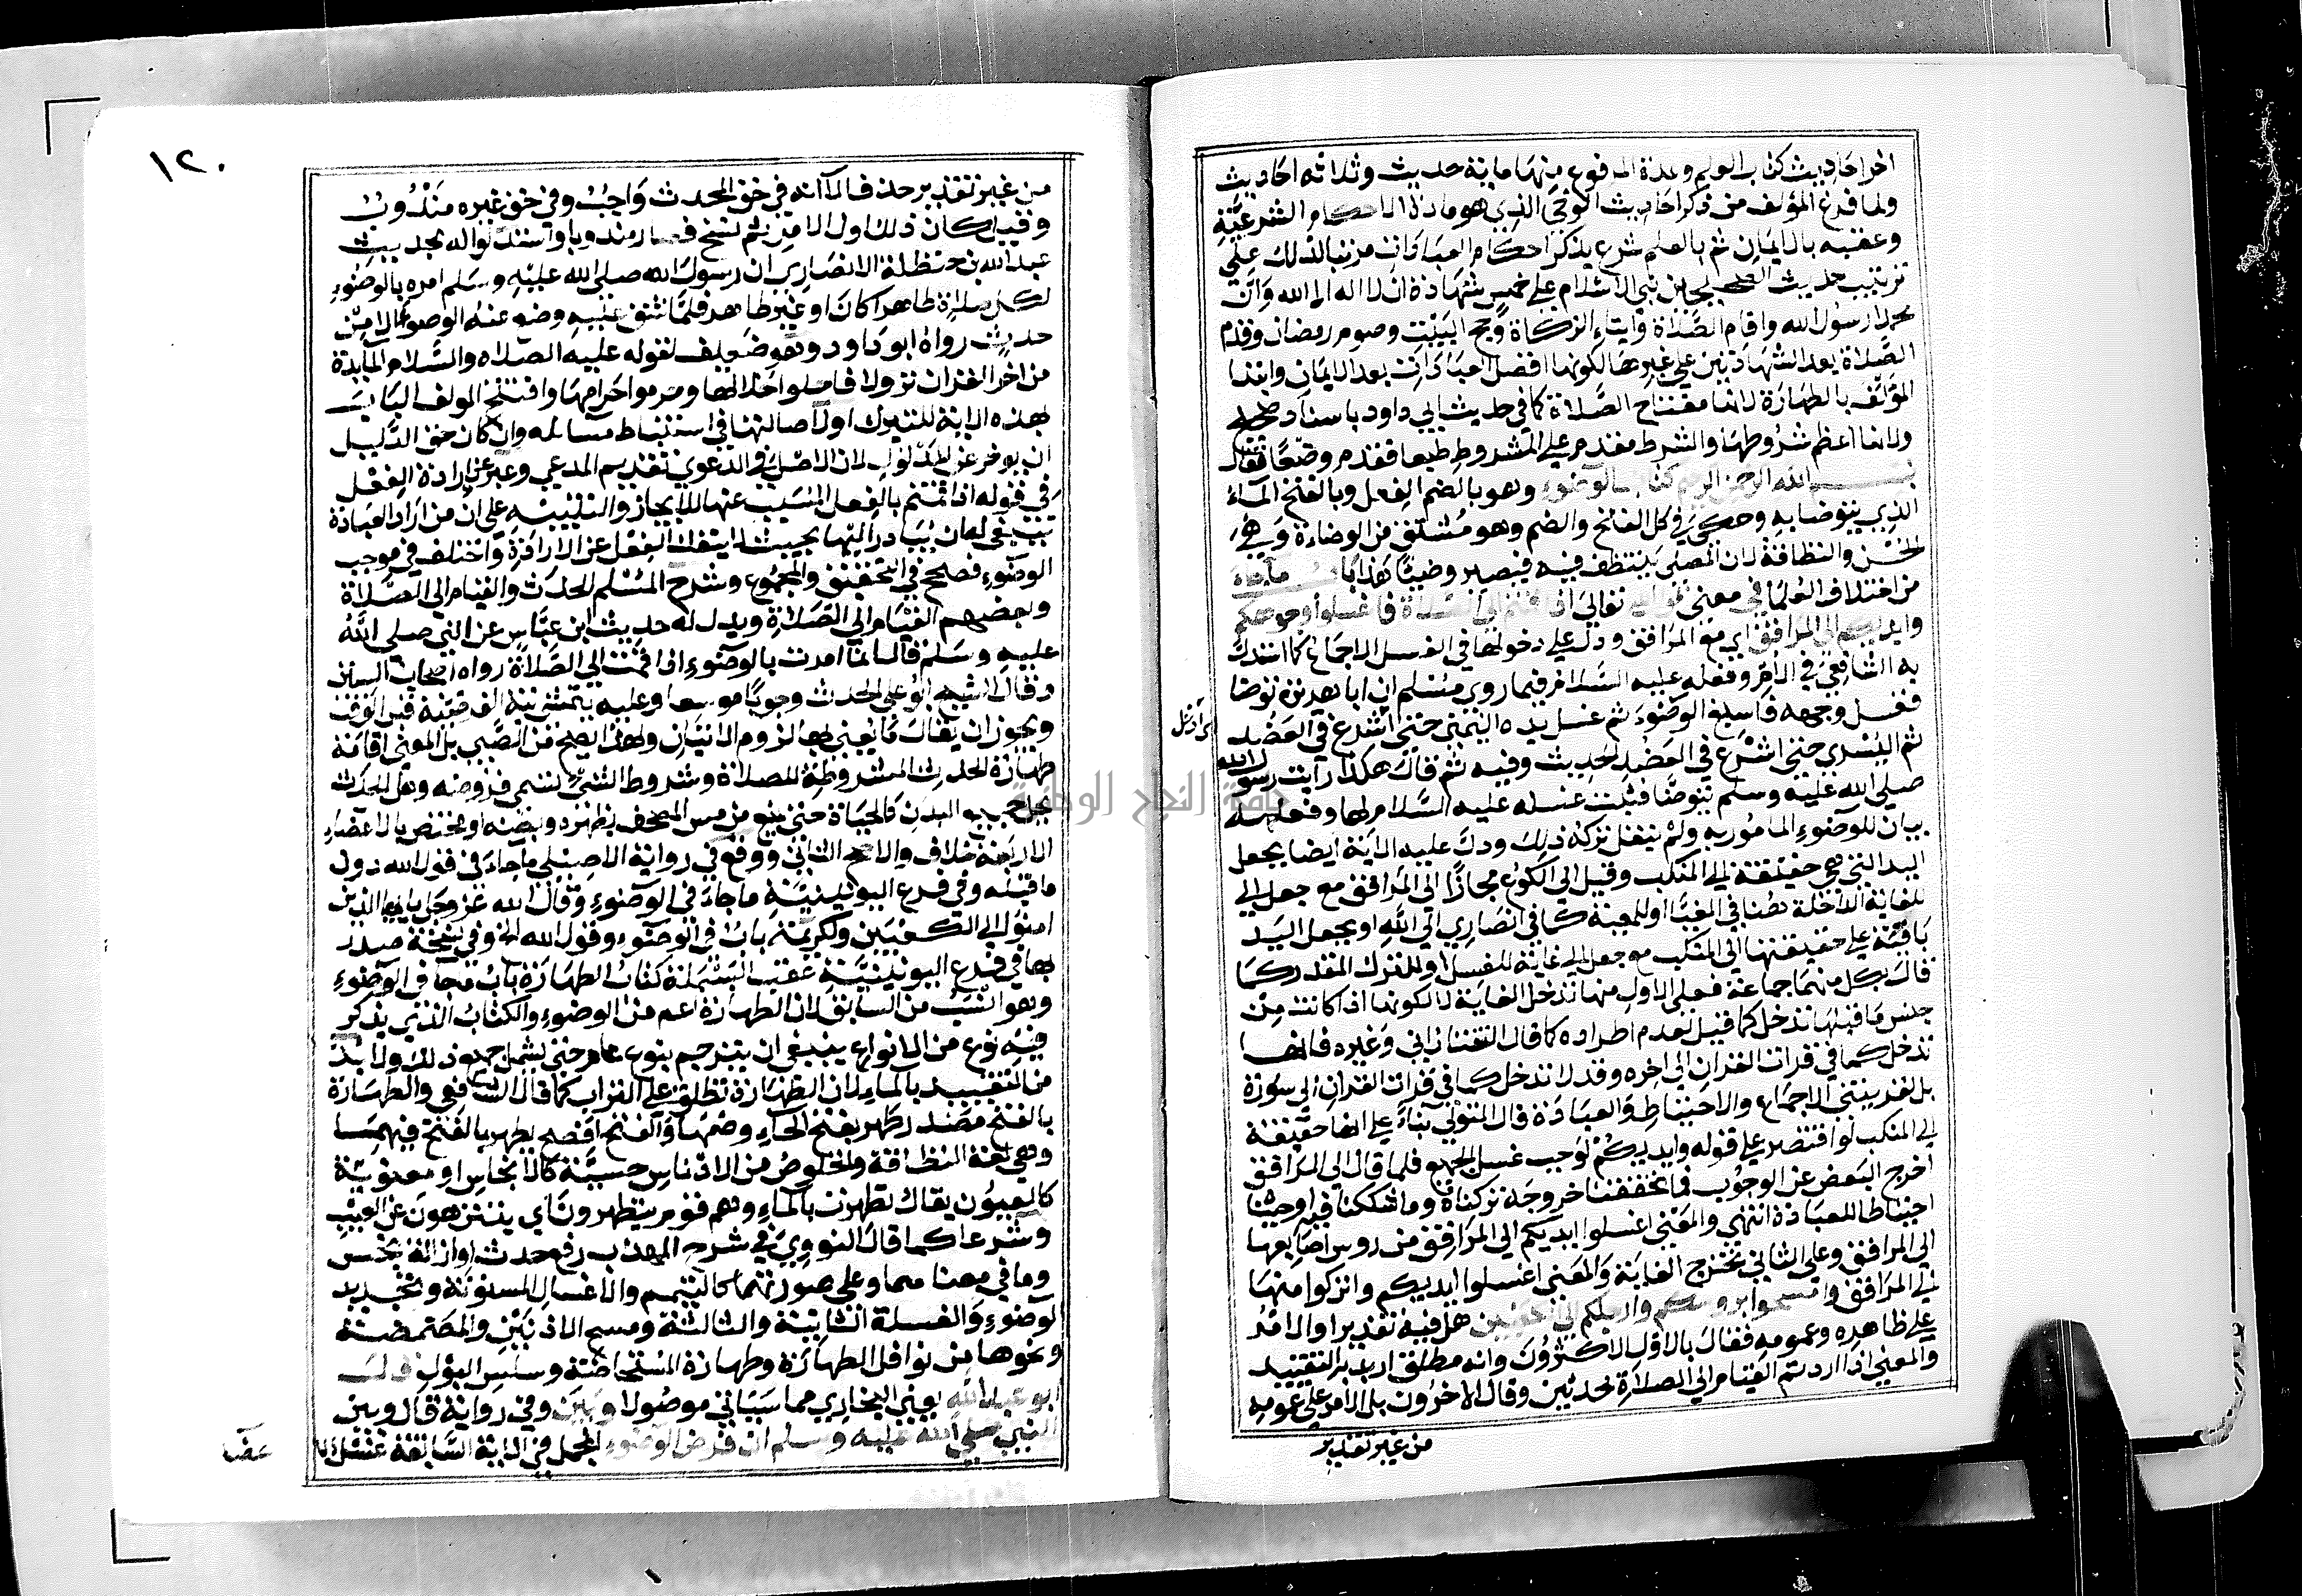 اخر احاديث كتاب العلم وعدة المرفوع منها ماية حديث وثلاثة احاديث
ولما فرغ المؤلف من ذكر احاديث الوحي الذي هو مادة الاحكام الشرعية
وعقبه بالايمان ثم بالعلم شرع يذكر احكام العبادات مرتبا لذلك على
ترتيب حديث الصحيحين بني الاسلام على خمس شهادة ان لا اله الا الله وان
محمدا رسول الله واقام الصلاة وايتاء الزكاة وحج البيت وصوم رمضان وقدم
الصلاة بعد الشهادتين على غيرها لكونها افضل العبادات بعد الايمان وابتدا
المؤلف بالطهارة لانها مفتاح الصلاة كما في حديث ابي داود باسناد صحيح
ولانها اعظم شروطها والشرط مقدم على المشروط طبعا فقدم وضعا فقال
بسم الله الرحمن الرحيم كتاب الوضوء وهو بالضم الفعل وبالفتح الماء
الذي يتوضا به وحكي في كل الفتح والضم وهو مشتق من الوضاءة وهي
الحسن والنظافة لان المصلي يتنظف فيه فيصير وضيئا هذا باب ما جاء
من اختلاف العلما في معنى قول الله تعالى اذا قمتم الى الصلاة فاغسلوا وجوهكم
وايديكم الى المرافق اي مع المرافق ودل على دخولها في الغسل الاجماع كما استدل
به الشافعي في الام وفعله عليه السلام فيما روى مسلم ان ابا هريرة توضا
فغسل وجهه فاسبغ الوضوء ثم غسل يده اليمنى حتى اشرع في العضد
ثم اليسرى حتى اشرع في العضد الحديث وفيه ثم قال هكذا رايت رسول الله
صلى الله عليه وسلم يتوضا فثبت غسله عليه السلام لها وفعله
بيان للوضوء المامور به ولم ينقل تركه ذلك ودل عليه الاية ايضا بجعل
اليد التي هي حقيقة الى المنكب وقيل الى الكوع مجازا الى المرافق مع جعل الى
للغاية الداخلة هنا في المغيا او للمعية كما في انصاري الى الله او بجعل اليد
باقية على حقيقتها الى المنكب مع جعل الى غاية للغسل او للترك المقدر كما
قال بكل منهما جماعة فعلى الاول منها تدخل الغاية لا لكونها اذا كانت من
جنس ما قبلها تدخل كما قيل لعدم اطراده كما قال التفتازاني وغيره فانها
تدخل كما في قرات القران الى اخره وقد لا تدخل كما في قرات القران الى سورة
بل لقرينتي الاجماع والاحتياط والعبادة قال المتولي بناء على انها حقيقة
الى المنكب لو اقتصر على قوله وايديكم لوجب غسل الجميع فلما قال الى المرافق
اخرج البعض عن الوجوب فما تحققنا خروجه تركناه وما شككنا فيه اوجبنا
احتياطا للعبادة انتهى والمعنى اغسلوا ايديكم الى المرافق من روس اصابعها
الى المرافق وعلى الثاني تخرج الغاية والمعنى اغسلوا ايديكم واتركوا منها
الى المرافق وامسحوا بروسكم وارجلكم الى الكعبين هل فيه تقدير او الامر
على ظاهره وعمومه فقال بالاول الاكثرون وانه مطلق اريد به التقييد
والمعنى اذا اردتم القيام الى الصلاة محدثين وقال الاخرون بل الامر على عمومه
من غير تقدير
١٢٠
من غير تقدير حذف الا انه في حق المحدث واجب وفي حق غيره مندوب
وقيل كان ذلك اول الامر ثم نسخ فصار مندوبا واستدلوا له بحديث
عبد الله بن حنظلة الانصاري ان رسول الله صلى الله عليه وسلم امره بالوضوء
لكل صلاة طاهرا كان او غير طاهر فلما شق عليه وضع عنه الوضوء الا من
حديث رواه ابو داود وهو ضعيف لقوله عليه الصلاة والسلام المايدة
من اخر القران نزولا فاحلوا حلالها وحرموا حرامها وافتتح المولف الباب
بهذه الاية للتبرك او لاصالتها في استنباط مسائله وان كان حق الدليل
ان يوخر عن المدلول لان الاصل في الدعوى تقديم المدعي وعبر عن ارادة الفعل
في قوله اذا قمتم بالفعل المسبب عنها للايجاز والتنبيه على ان من اراد العبادة
ينبغي له ان يبادر اليها بحيث لا ينفك الفعل عن الارادة واختلف في موجب
الوضوء فصحح في التحقيق والمجموع وشرح المسلم الحدث والقيام الى الصلاة
وبعضهم القيام الى الصلاة ويدل له حديث ابن عباس عن النبي صلى الله
عليه وسلم قال انما امرت بالوضوء اذا قمت الى الصلاة رواه اصحاب السنن
وقال الشيخ ابو علي الحدث وجوبا موسعا وعليه يتمشى نية الفرضية قبل الوقت
ويجوز ان يقال ما يعني بها لزوم الاتيان ولهذا يصح من الصبي بل المعنى اقامة
طهارة الحدث المشروطة للصلاة وشروط الشيء تسمى فروضه وهل الحدث
يحل جميع البدن كالجنابة حتى يمنع من مس المصحف بظهره وبطنه او يختص بالاعضاء
الاربعة خلاف والاصح الثاني ووقع في رواية الاصيلي ما جاء في قول الله دون
ما قبله وفي فرع اليونينية ما جاء في الوضوء وقال الله عز وجل يا ايها الذين
امنوا الى الكعبين ولكريمة باب في الوضوء وقول الله الخ وفي نسخة صدر
بها في فرع اليونينية عقب البسملة كتاب الطهارة باب ما جا في الوضوء
وهو انسب من السابق لان الطهارة اعم من الوضوء والكتاب الذي يذكر
فيه نوع من الانواع ينبغي ان يترجم بنوع عام حتى يشمل جميع ذلك ولا بد
من التقييد بالماء لان الطهارة تطلق على التراب كما قال الشافعي والطهارة
بالفتح مصدر طهر بفتح الهاء وضمها والفتح افصح يطهر بالفتح فيهما
وهي لغة النظافة والخلوص من الادناس حسية كالانجاس او معنوية
كالعيوب يقال تطهرت بالماء وهم قوم يتطهرون اي يتنزهون عن العيب
وشرعا كما قال النووي في شرح المهذب رفع حدث او ازالة نجس
وما في معناهما وعلى صورتهما كالتيمم والاغسال المسنونة وتجديد
الوضوء والغسلة الثانية والثالثة ومسح الاذنين والمضمضة
ونحوها من نوافل الطهارة وطهارة المستحاضة وسلس البول قال
ابو عبد الله يعني البخاري مما سياتي موصولا وبين وفي رواية قال وبين
النبي صلى الله عليه وسلم ان فرض الوضوء المجمل في الاية السابقة غسل الا
عضا
جامعة النجاح الوطنية